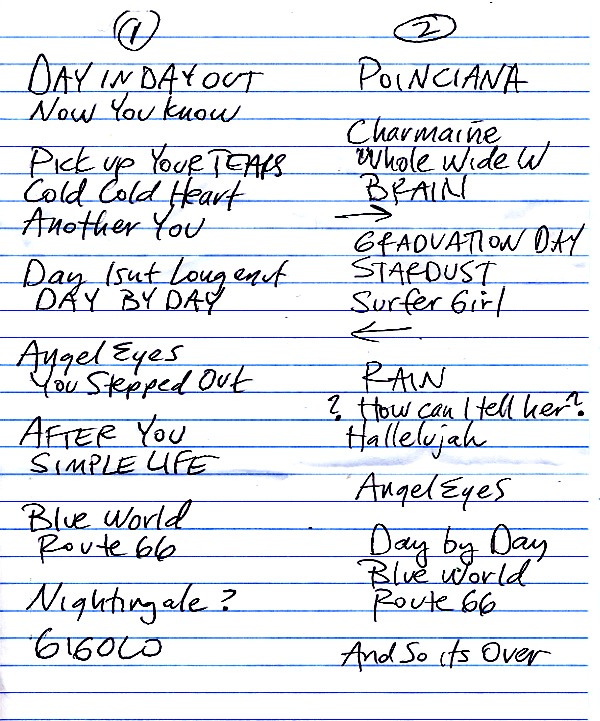 1
DAY IN DAY OUT
Now You Know
Pick up Your TEARS
Cold Cold Heart
Another You
Day Isnt Long enuf
DAY BY DAY
Angel Eyes
You Stepped Out
AFTER YOU
SIMPLE LIFE
Blue World
Route 66
Nightingale ?
GIGOLO
2
POINCIANA
Charmaine
Whole Wide W
BRAIN
→
GRADUATION DAY
STARDUST
Surfer Girl
←
RAIN
? How can I tell her?
Hallelujah
Angel Eyes
Day by Day
Blue World
Route 66
And So its Over